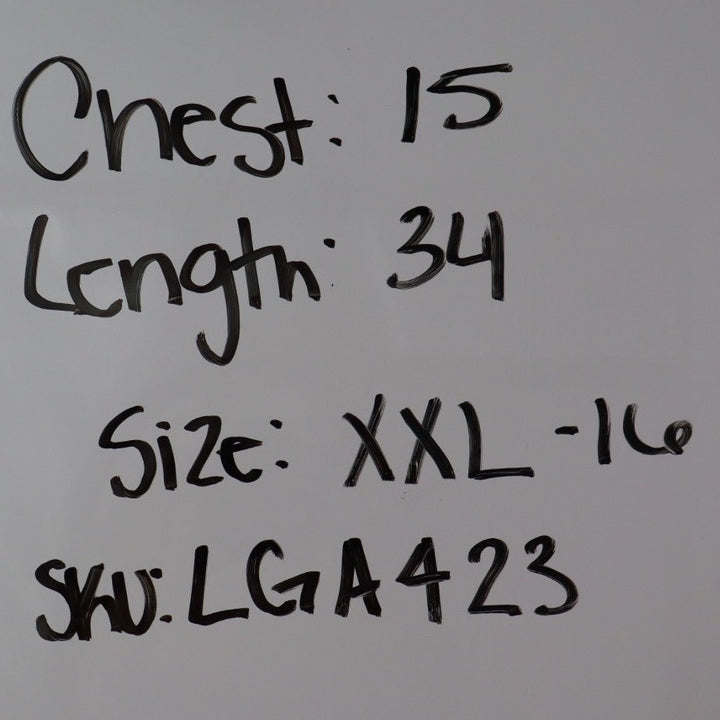 Chest: 15
Length: 34
Size: XXL -16
SKU: LGA423